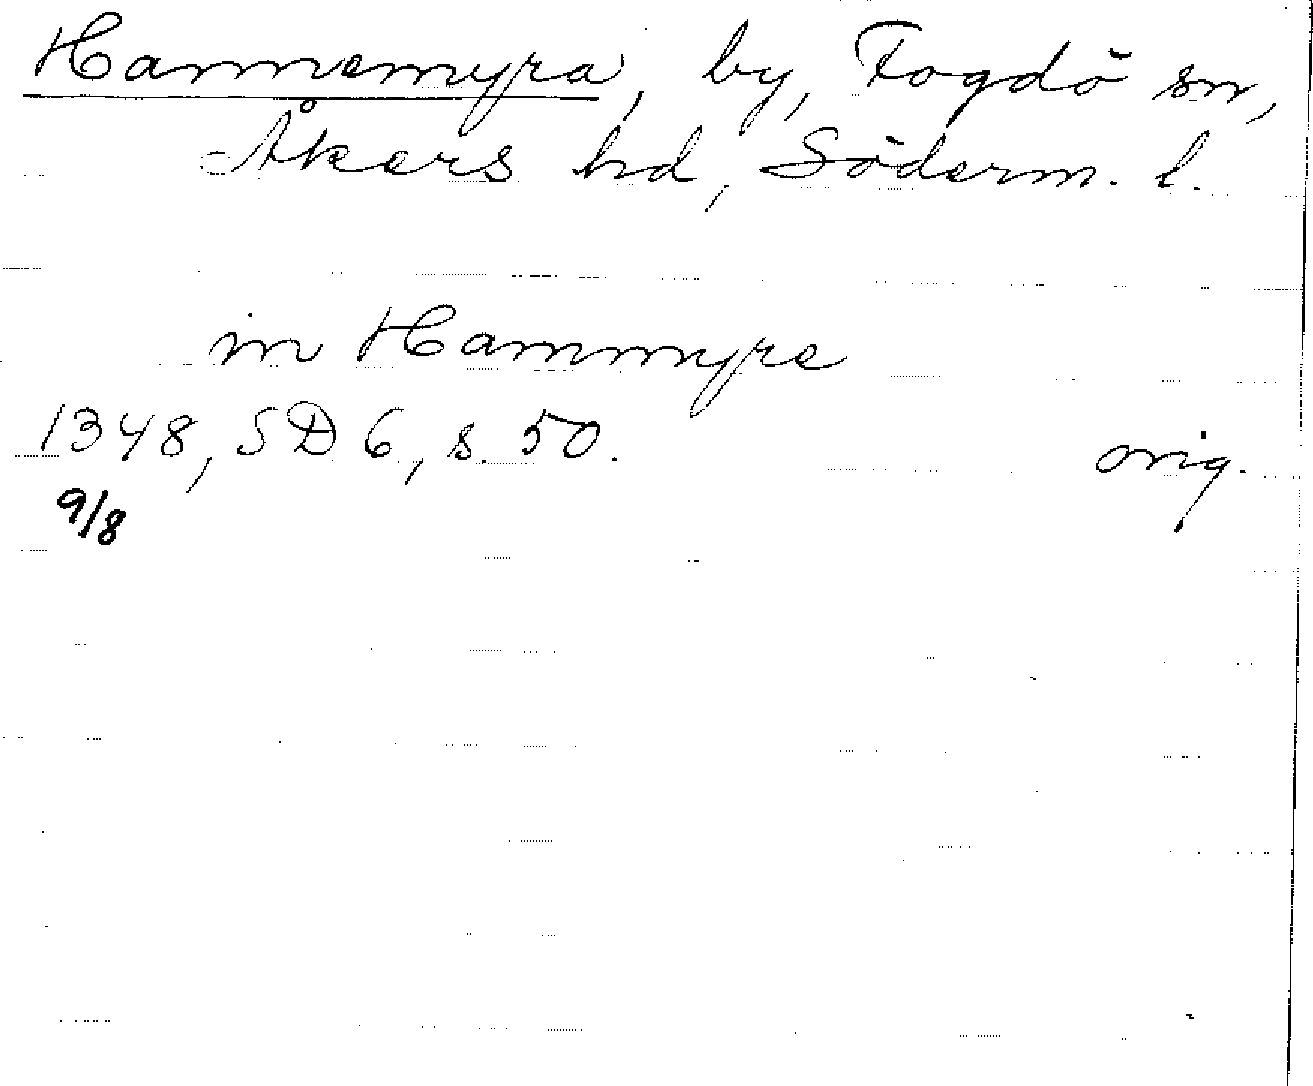 Hannemyra, by, Fogdö sn,
Åkers hd, Söderm. l.
in Hammyre
1348, SD 6, s. 50. orig.
9/8